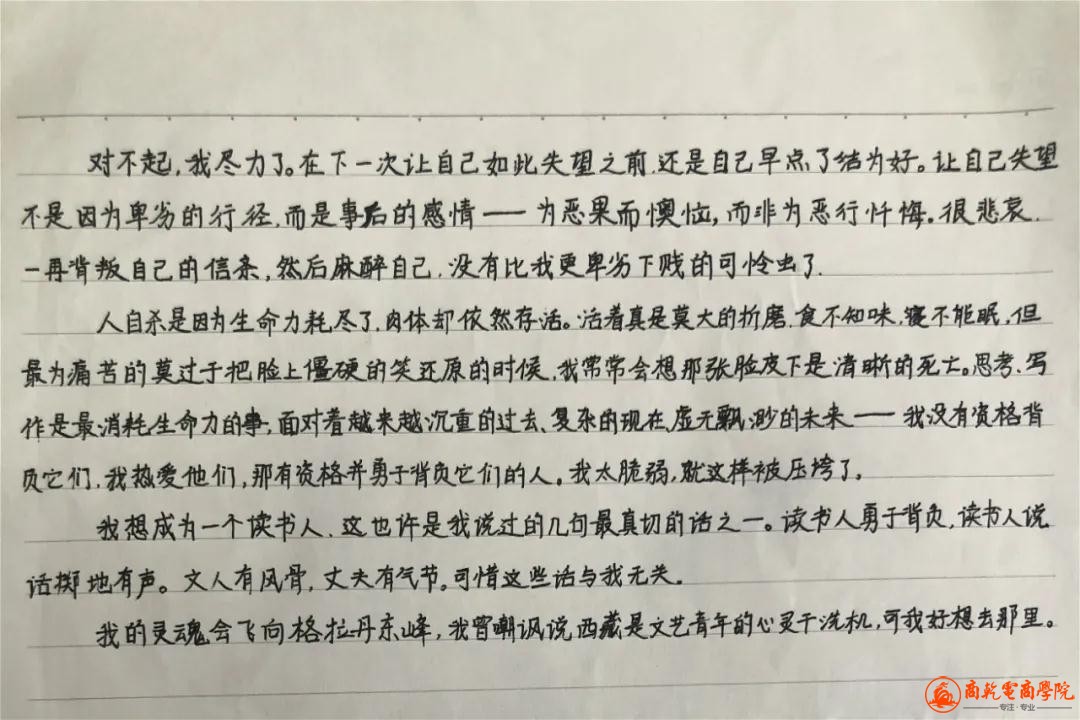 对不起，我尽力了。在下一次让自己如此失望之前，还是自己早点了结为好。让自己失望
不是因为卑劣的行径，而是事后的感情——为恶果而懊恼，而非为恶行忏悔。很悲哀，
一再背叛自己的信条，然后麻醉自己，没有比我更卑劣下贱的可怜虫了。
人自杀是因为生命力耗尽了，肉体却依然存活。活着真是莫大的折磨，食不知味，寝不能眠，但
最为痛苦的莫过于把脸上僵硬的笑还原的时候，我常常会想那张脸皮下是清晰的死亡。思考、写
作是最消耗生命力的事，面对着越来越沉重的过去、复杂的现在、虚无飘渺的未来——我没有资格背
负它们，我热爱他们，那有资格并勇于背负它们的人。我太脆弱，就这样被压垮了。
我想成为一个读书人，这也许是我说过的几句最真切的话之一。读书人勇于背负，读书人说
话掷地有声。文人有风骨，丈夫有气节。可惜这些话与我无关。
我的灵魂会飞向格拉丹东峰，我曾嘲讽说西藏是文艺青年的心灵干洗机，可我好想去那里。
商乾電商學院
专注·专业